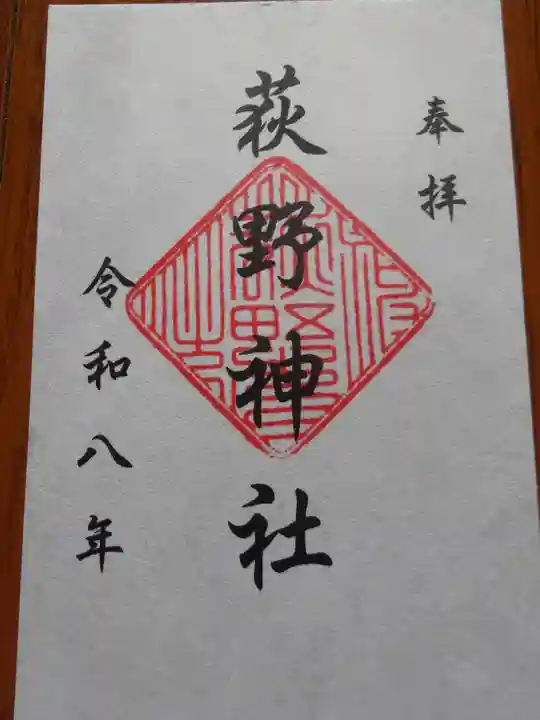 奉拝
萩野神社
令和八年